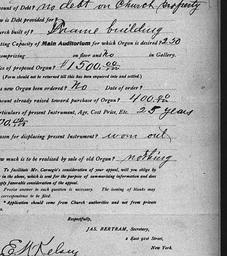 ount of Debt? no debt on Church property
w is Debt provided for
urch built of? Frame building
ating Capacity of Main Auditorium for which Organ is desired? 250
comprising on floor and No in Gallery.
ice of proposed Organ? $1500.00
(Form should not be returned till this has been enquired into and settled.)
s new Organ been ordered? No Date of order?
mount already raised toward purchase of Organ? 400.00
rticulars of present Instrument, Age, Cost Price, Etc. 25 years
00.00
ason for displacing present Instrument? worn out
ow much is to be realised by sale of old Organ? nothing
To facilitate Mr. Carnegie's consideration of your appeal, will you oblige by
in the above, which is sent for the purpose of summarising information and
ly favorable consideration of the appeal.
Precise answer to each question is necessary. The issuing of blanks may
correspondence to be filed.
* Application should come from Church authorities and not from private
Respectfully,
JAS. BERTRAM, Secretary,
2 East 91st Street,
New York.
E N Kelsey